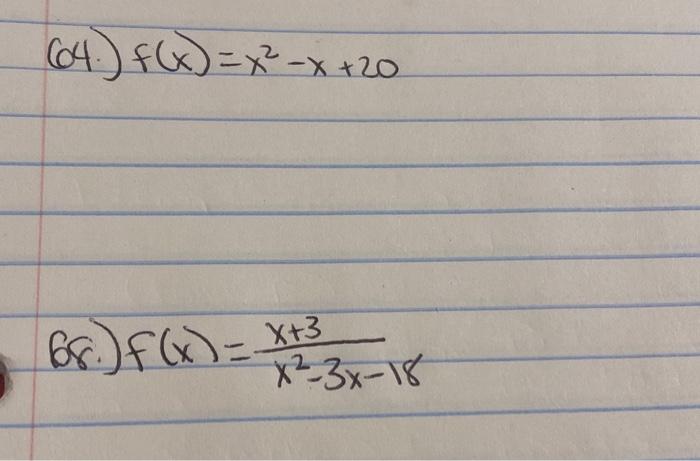 64.) f(x) = x² - x + 20
68.) f(x) = x+3 / x² - 3x - 18